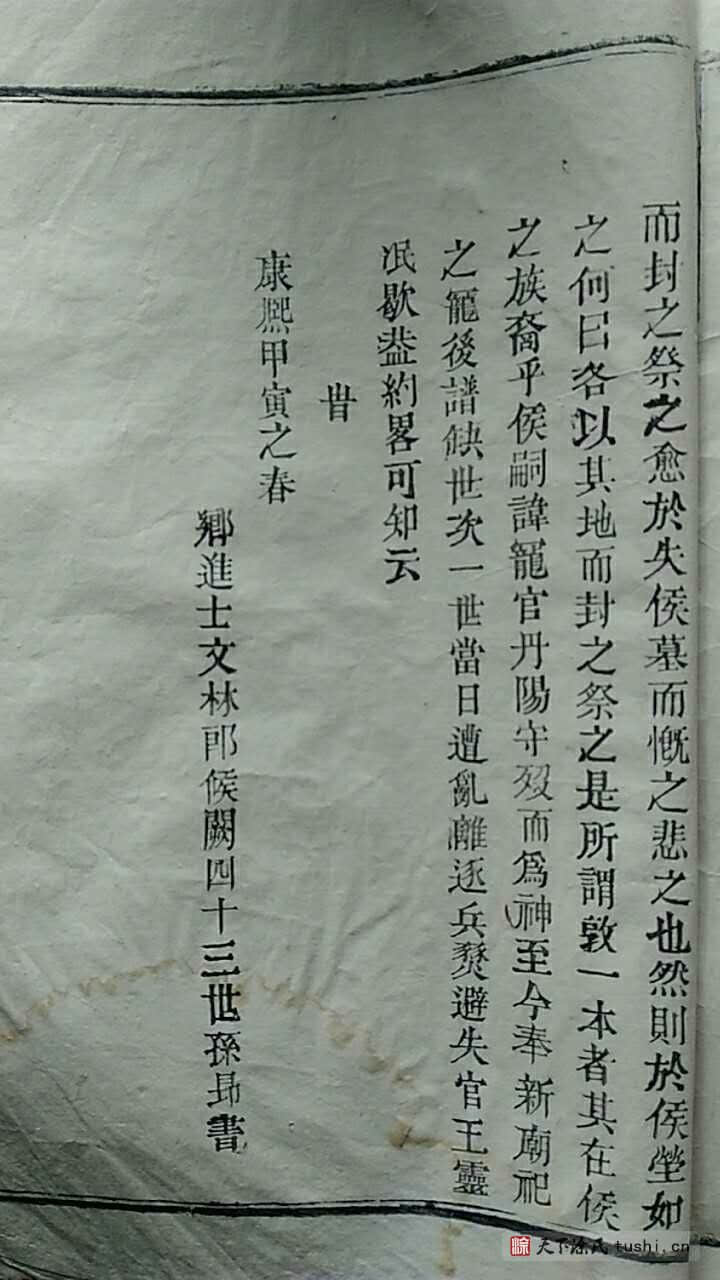 而封之祭之愈於失侯墓而慨之悲之也然則於侯塋如
之何曰各以其地而封之祭之是所謂敦一本者其在侯
之族裔乎侯嗣諱寵官丹陽守歿而為神至今奉新廟祀
之寵後譜缺世次一世當日遭亂離逐兵燹避失官王靈
泯歇益約畧可知云
旹
康熙甲寅之春
鄉進士文林郎候闕四十三世孫昂書
天下涂氏tushi.cn